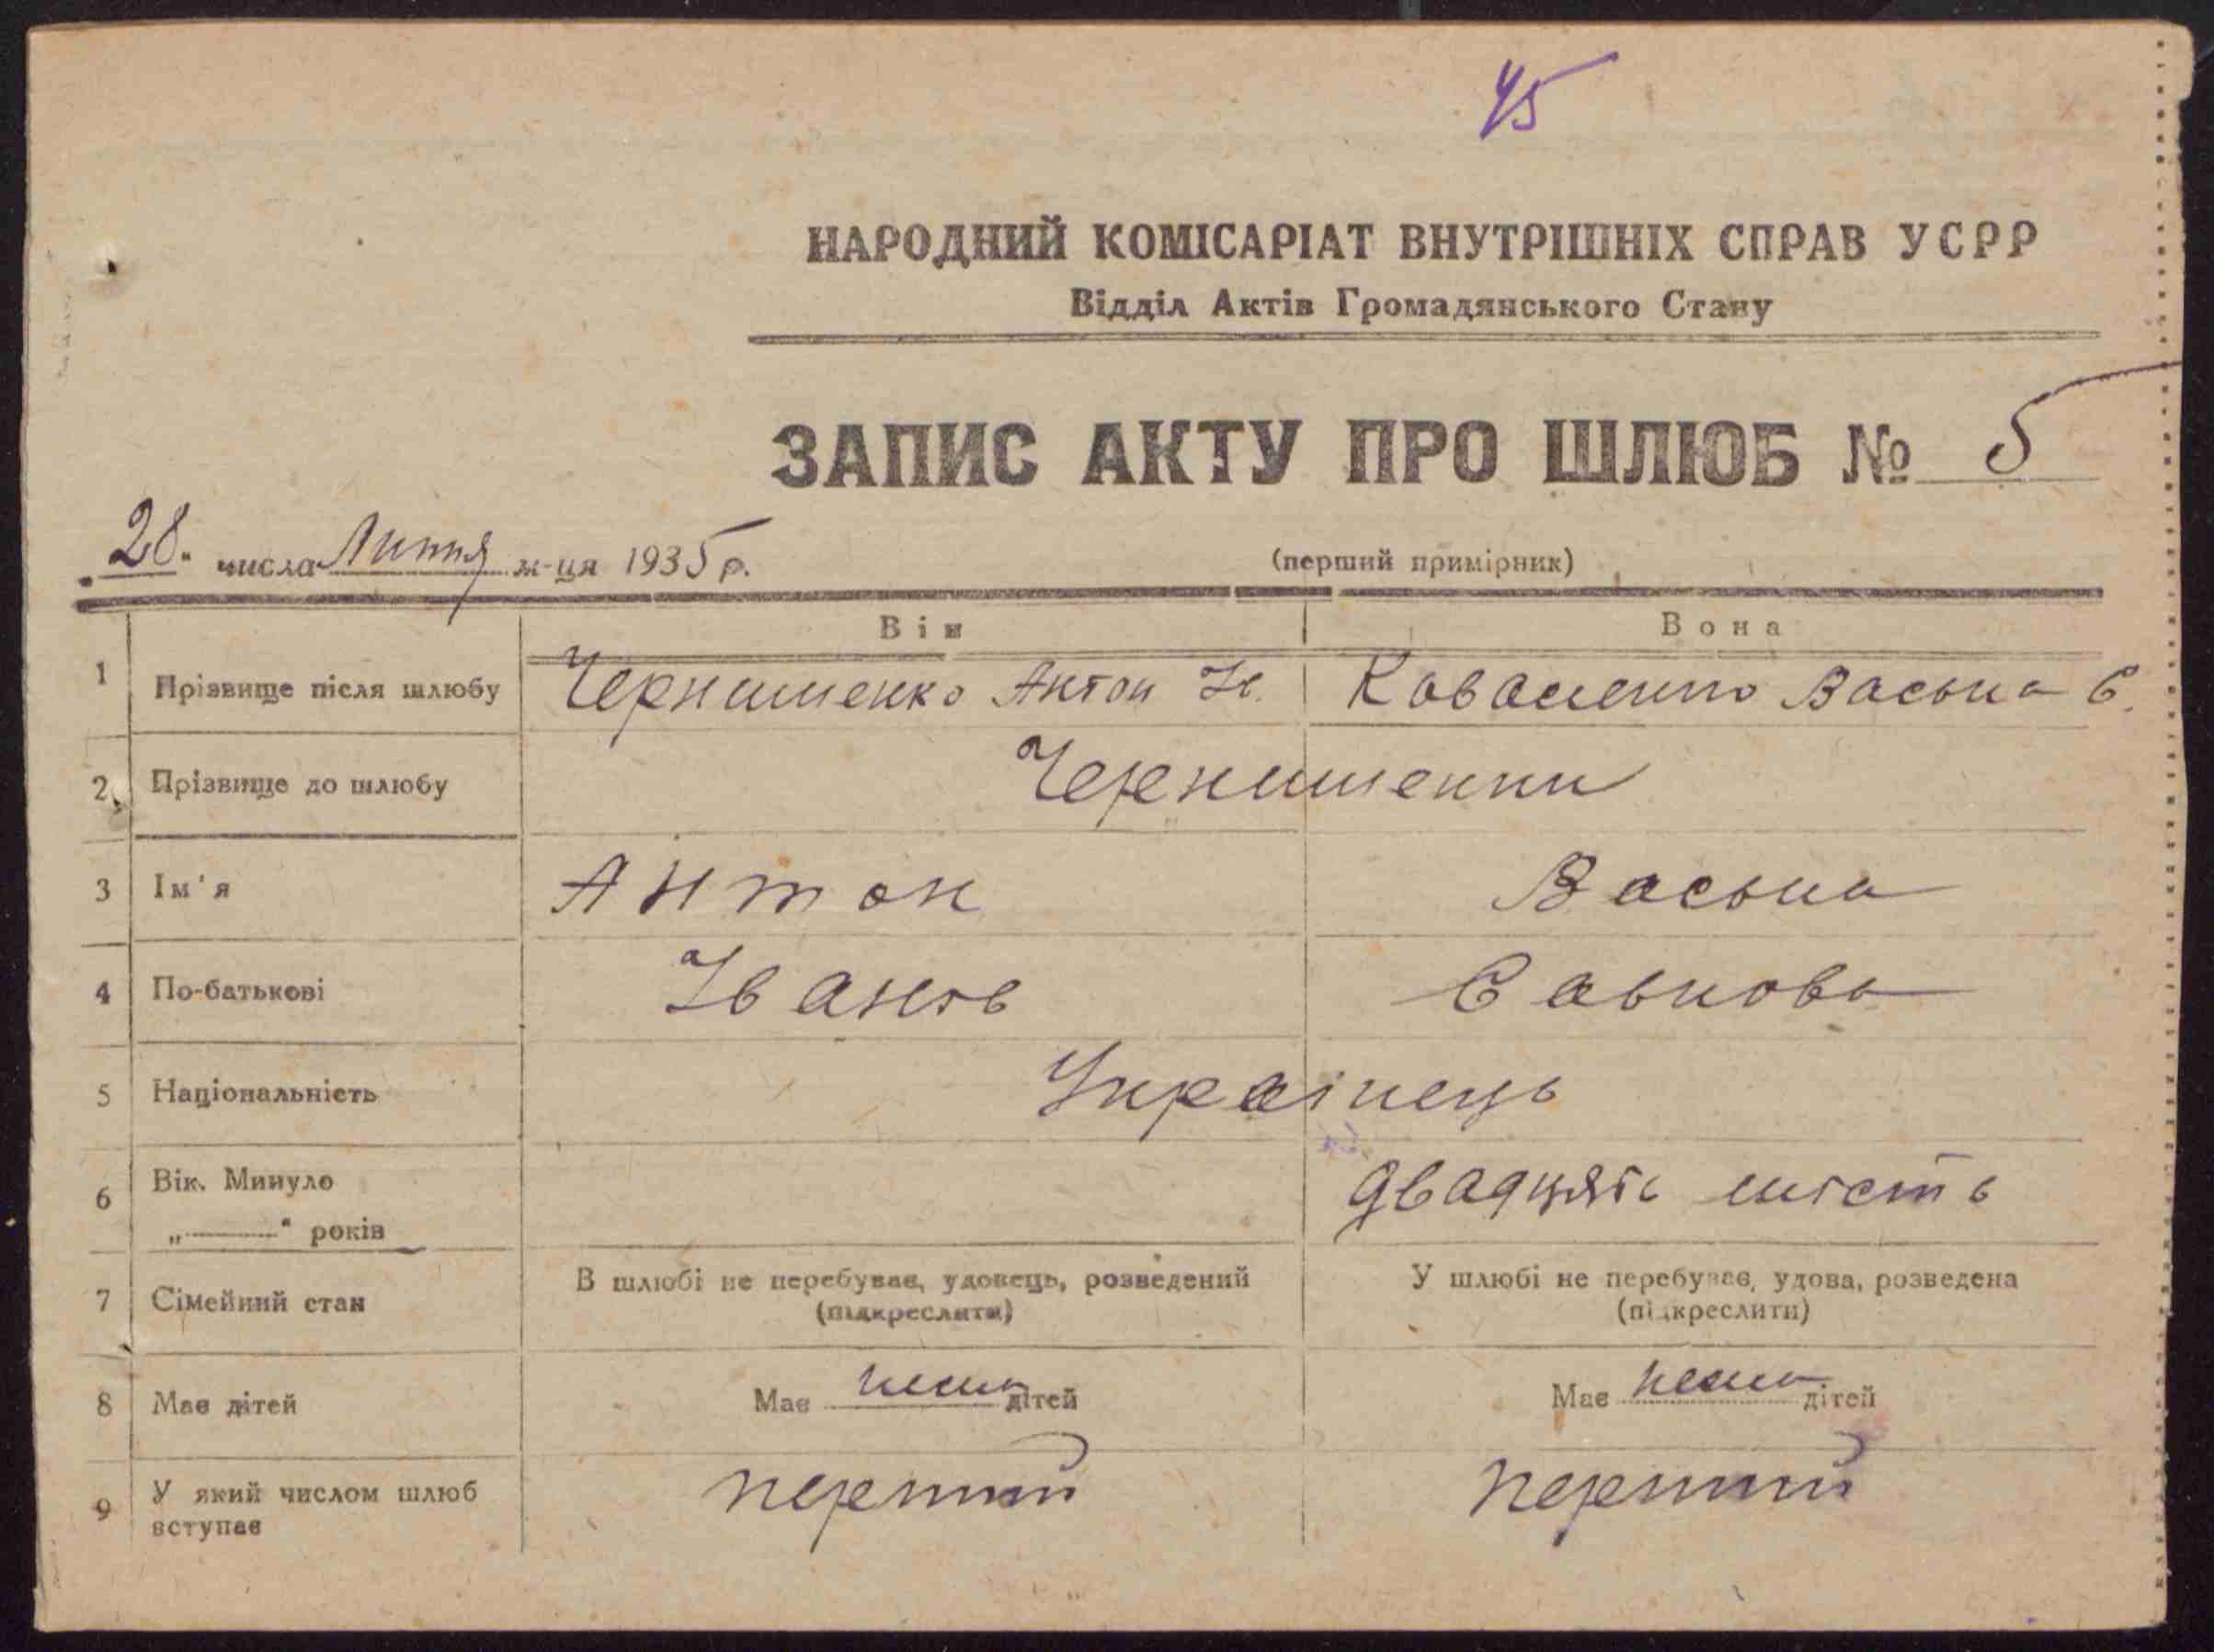 45
НАРОДНИЙ КОМІСАРІАТ ВНУТРІШНІХ СПРАВ УСРР
Відділ Актів Громадянського Стану
ЗАПИС АКТУ ПРО ШЛЮБ № 5
28 числа Липня м-ця 1935 р. (перший примірник)
Він Вона
1 Прізвище після шлюбу Чернишенко Антон Ів. Коваленко Васька С.
2 Прізвище до шлюбу Чернишенки
3 Ім'я Антон Васька
4 По-батькові Іванів Савкова
5 Національність Українець
6 Вік. Минуло двадцять шість
„——“ років
7 Сімейний стан В шлюбі не перебував, удовець, розведений У шлюбі не перебуває, удова, розведена
(підкреслити) (підкреслити)
8 Має дітей Має нема дітей Має нема дітей
9 У який числом шлюб вступає перший перший